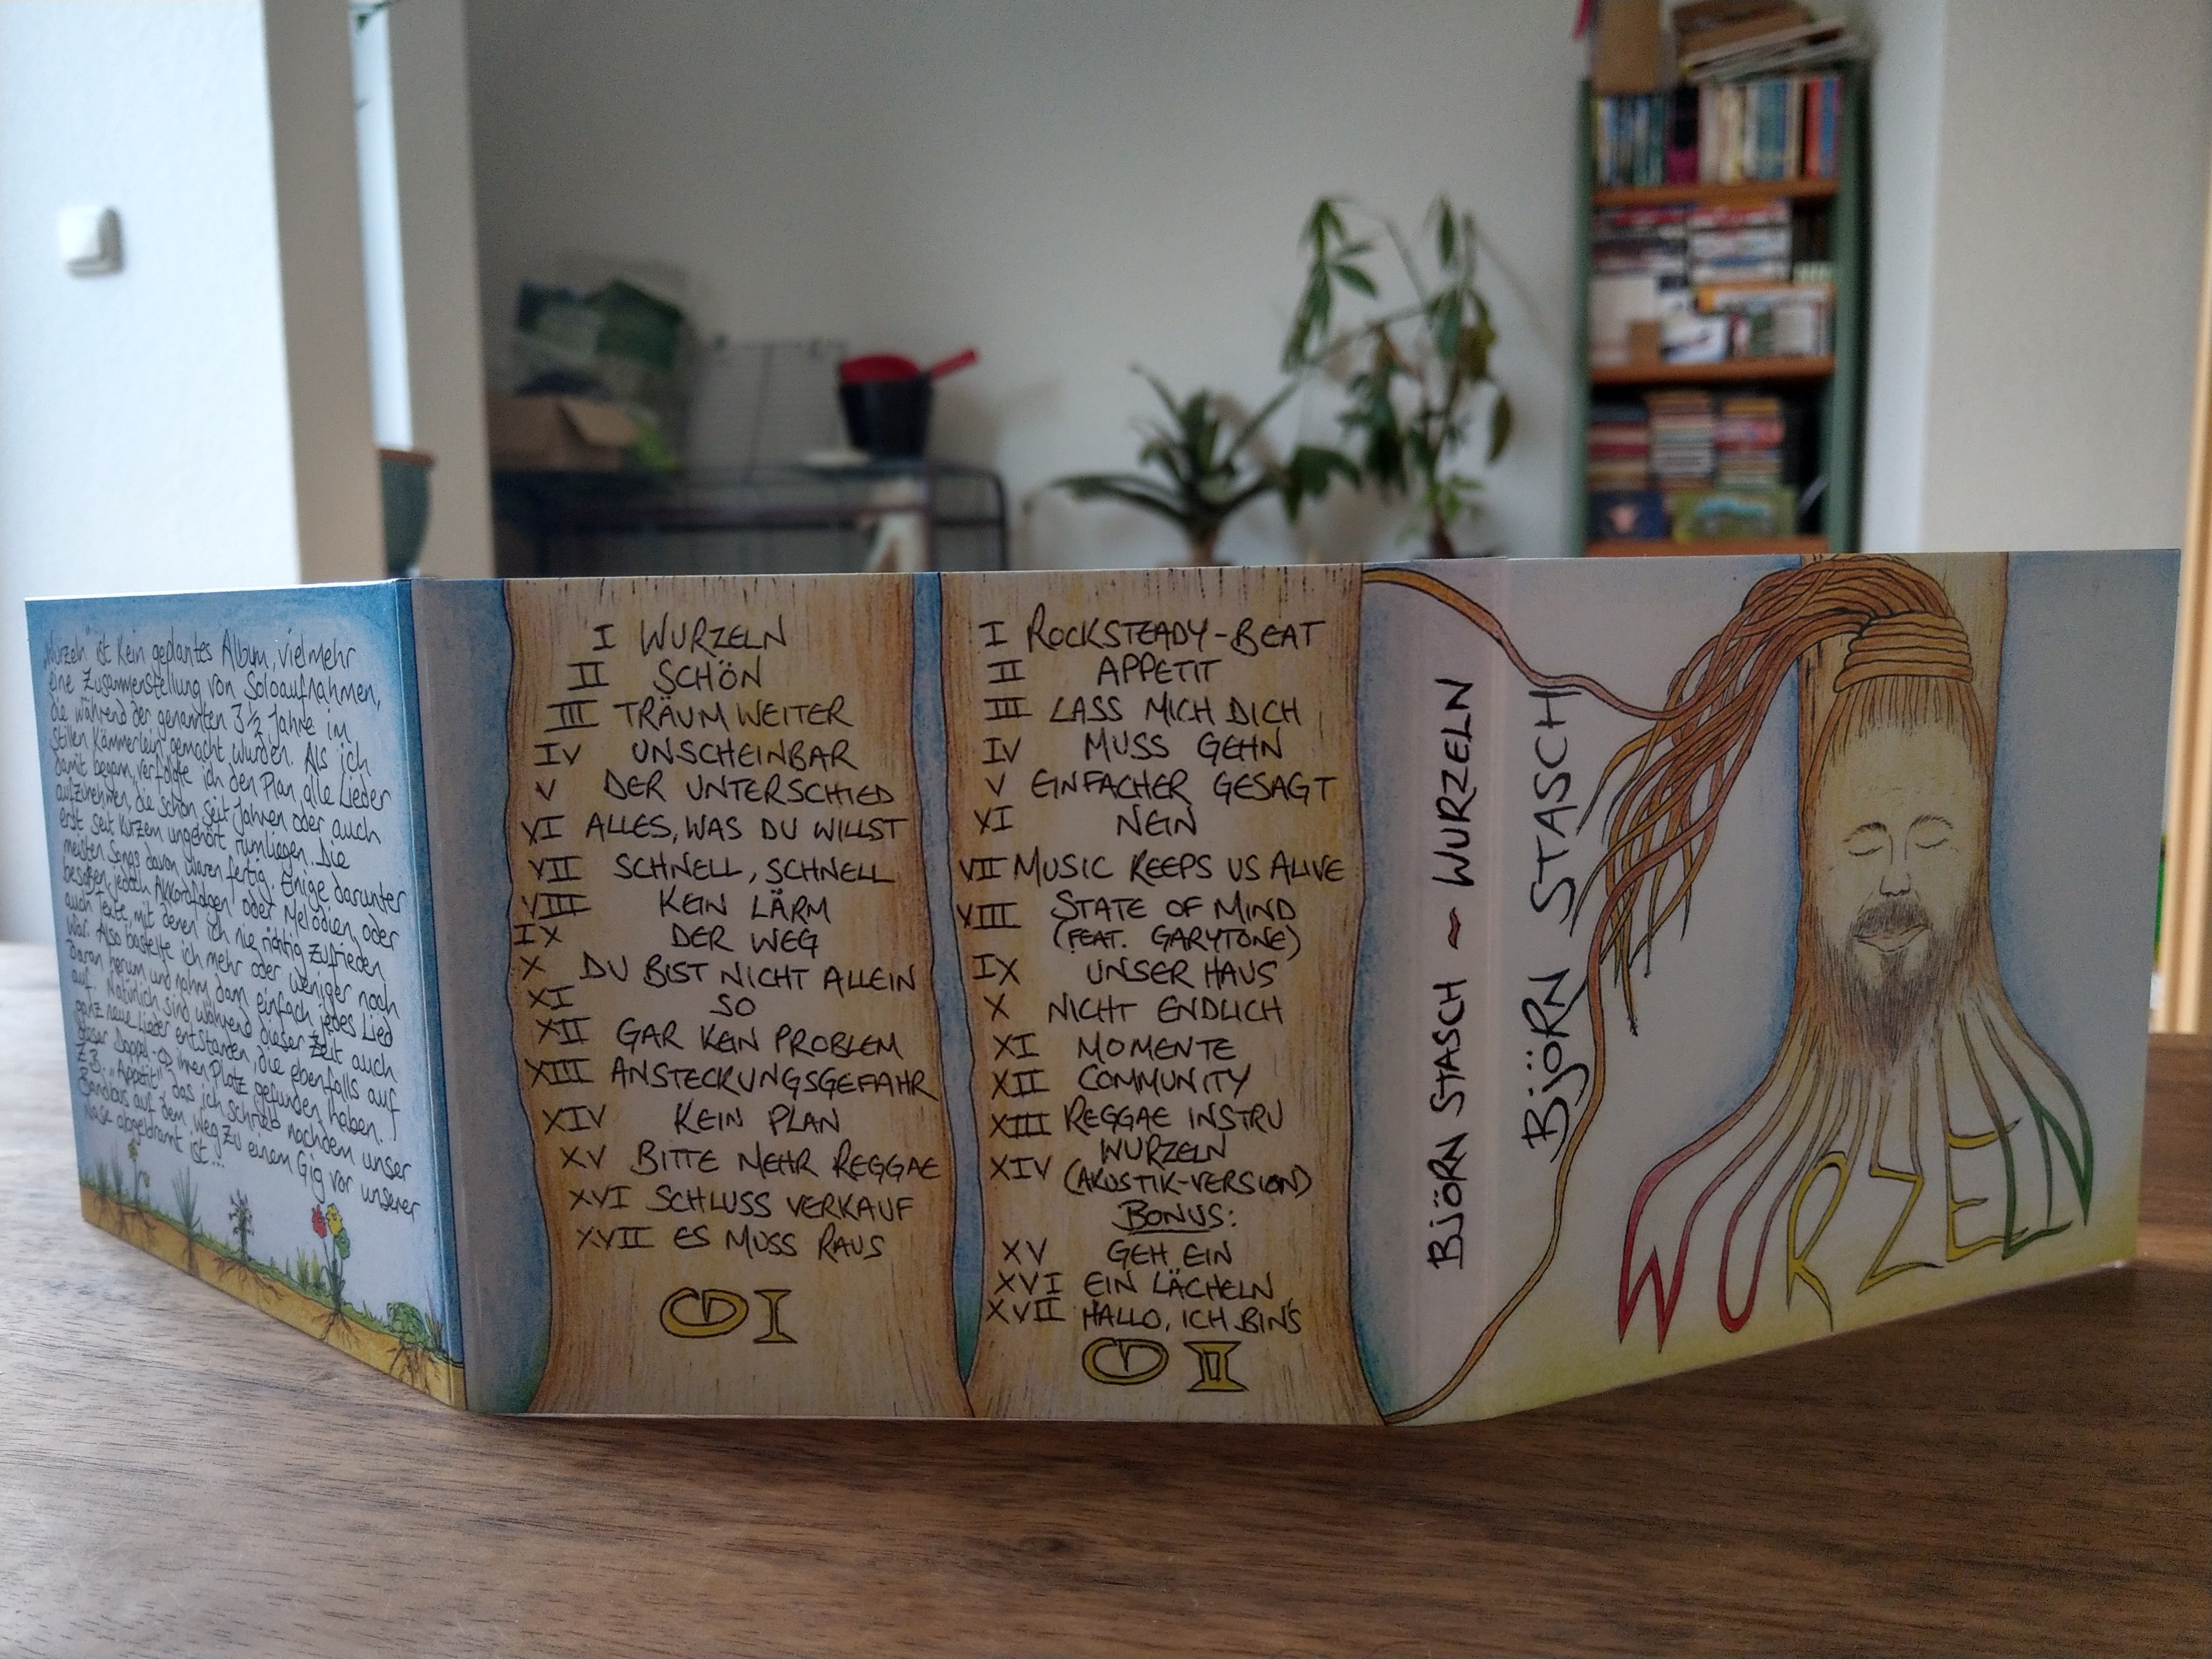 „Wurzeln" ist kein geplantes Album, vielmehr
eine Zusammenstellung von Soloaufnahmen,
die während der genannten 3 ½ Jahre im
stillen Kämmerlein gemacht wurden. Als ich
damit begann, verfolgte ich den Plan, alle Lieder
aufzunehmen, die schon seit Jahren oder auch
erst seit Kurzem ungehört rumliegen. Die
meisten Songs davon waren fertig. Einige darunter
besaßen jedoch Akkordfolgen oder Melodien, oder
auch Texte, mit denen ich nie richtig zufrieden
war. Also bastelte ich mehr oder weniger noch
daran herum und nahm dann einfach jedes Lied
auf. Natürlich sind während dieser Zeit auch
ganz neue Lieder entstanden, die ebenfalls auf
dieser Doppel-CD ihren Platz gefunden haben.
Z.B. „Appetit", das ich schrieb nachdem unser
Bandbus auf dem Weg zu einem Gig vor unserer
Nase abgebrannt ist...
I WURZELN
II SCHÖN
III TRÄUM WEITER
IV UNSCHEINBAR
V DER UNTERSCHIED
VI ALLES, WAS DU WILLST
VII SCHNELL, SCHNELL
VIII KEIN LÄRM
IX DER WEG
X DU BIST NICHT ALLEIN
XI SO
XII GAR KEIN PROBLEM
XIII ANSTECKUNGSGEFAHR
XIV KEIN PLAN
XV BITTE MEHR REGGAE
XVI SCHLUSS VERKAUF
XVII ES MUSS RAUS
CD I
I ROCKSTEADY-BEAT
II APPETIT
III LASS MICH DICH
IV MUSS GEHN
V EINFACHER GESAGT
XI NEIN
VII MUSIC KEEPS US ALIVE
VIII STATE OF MIND
(FEAT. GARYTONE)
IX UNSER HAUS
X NICHT ENDLICH
XI MOMENTE
XII COMMUNITY
XIII REGGAE INSTRU
XIV WURZELN
(AKUSTIK-VERSION)
BONUS:
XV GEH EIN
XVI EIN LÄCHELN
XVII HALLO, ICH BIN'S
CD II
BJÖRN STASCH ~ WURZELN
BJÖRN STASCH
WURZELN